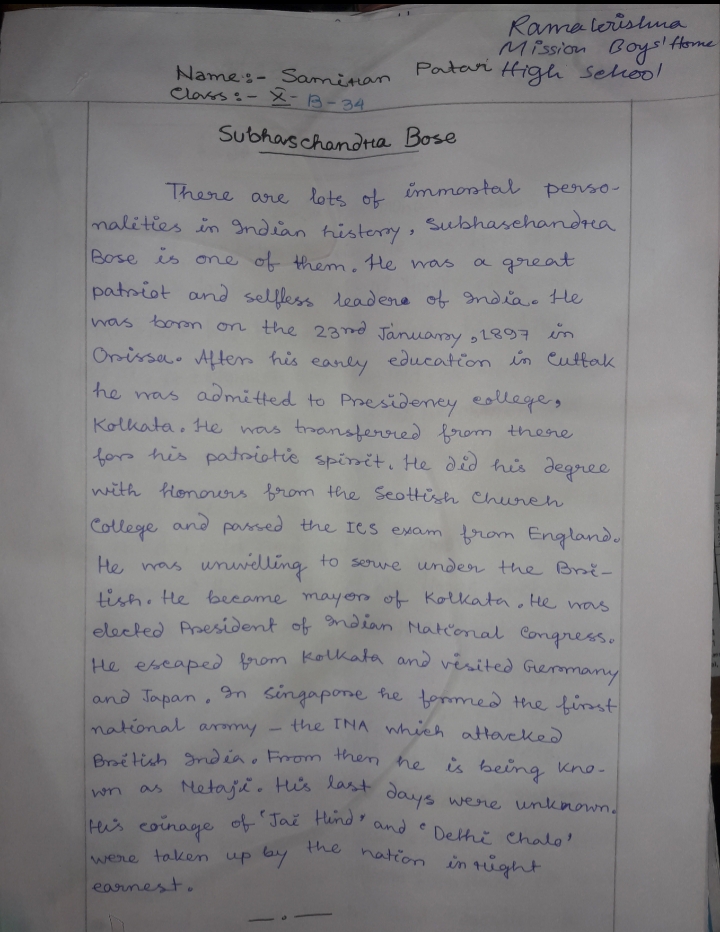 Ramakrishna
Mission Boys' Home
High School
Name:- Samiran Patar
Class:- X - B - 34
Subhaschandra Bose
There are lots of immortal perso-
nalities in Indian history, Subhaschandra
Bose is one of them. He was a great
patriot and selfless leader of India. He
was born on the 23rd January, 1897 in
Orissa. After his early education in Cuttak
he was admitted to Presidency college,
Kolkata. He was transferred from there
for his patriotic spirit. He did his degree
with Honours from the Scottish Church
College and passed the ICS exam from England.
He was unwilling to serve under the Bri-
tish. He became mayor of Kolkata. He was
elected President of Indian National Congress.
He escaped from Kolkata and visited Germany
and Japan. In Singapore he formed the first
national army - the INA which attacked
British India. From then he is being kno-
wn as Netaji. His last days were unknown.
His coinage of 'Jai Hind' and 'Delhi Chalo'
were taken up by the nation in right
earnest.